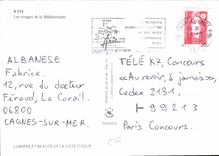 Les rivages de la Méditerranée
ALBANESE
Fabrice.
12, rue du docteur
Féraud, Le Corail
06800
CAGNES-SUR-MER
TÉLÉ K7, Concours
«Au revoir, à jamais»,
Cedex 2131,
99213
Paris Concours.
LUMIÈRE ET BEAUTÉ DE LA CÔTE D'AZUR